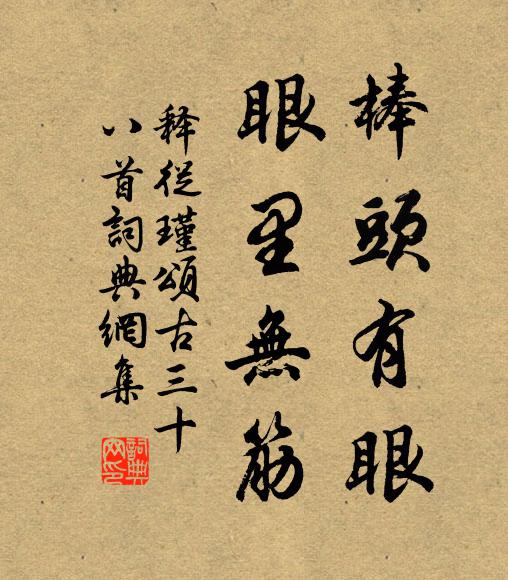 棒頭有眼
眼里無筋
释從瑾頌古三十
八首詞典網集
詞典网印